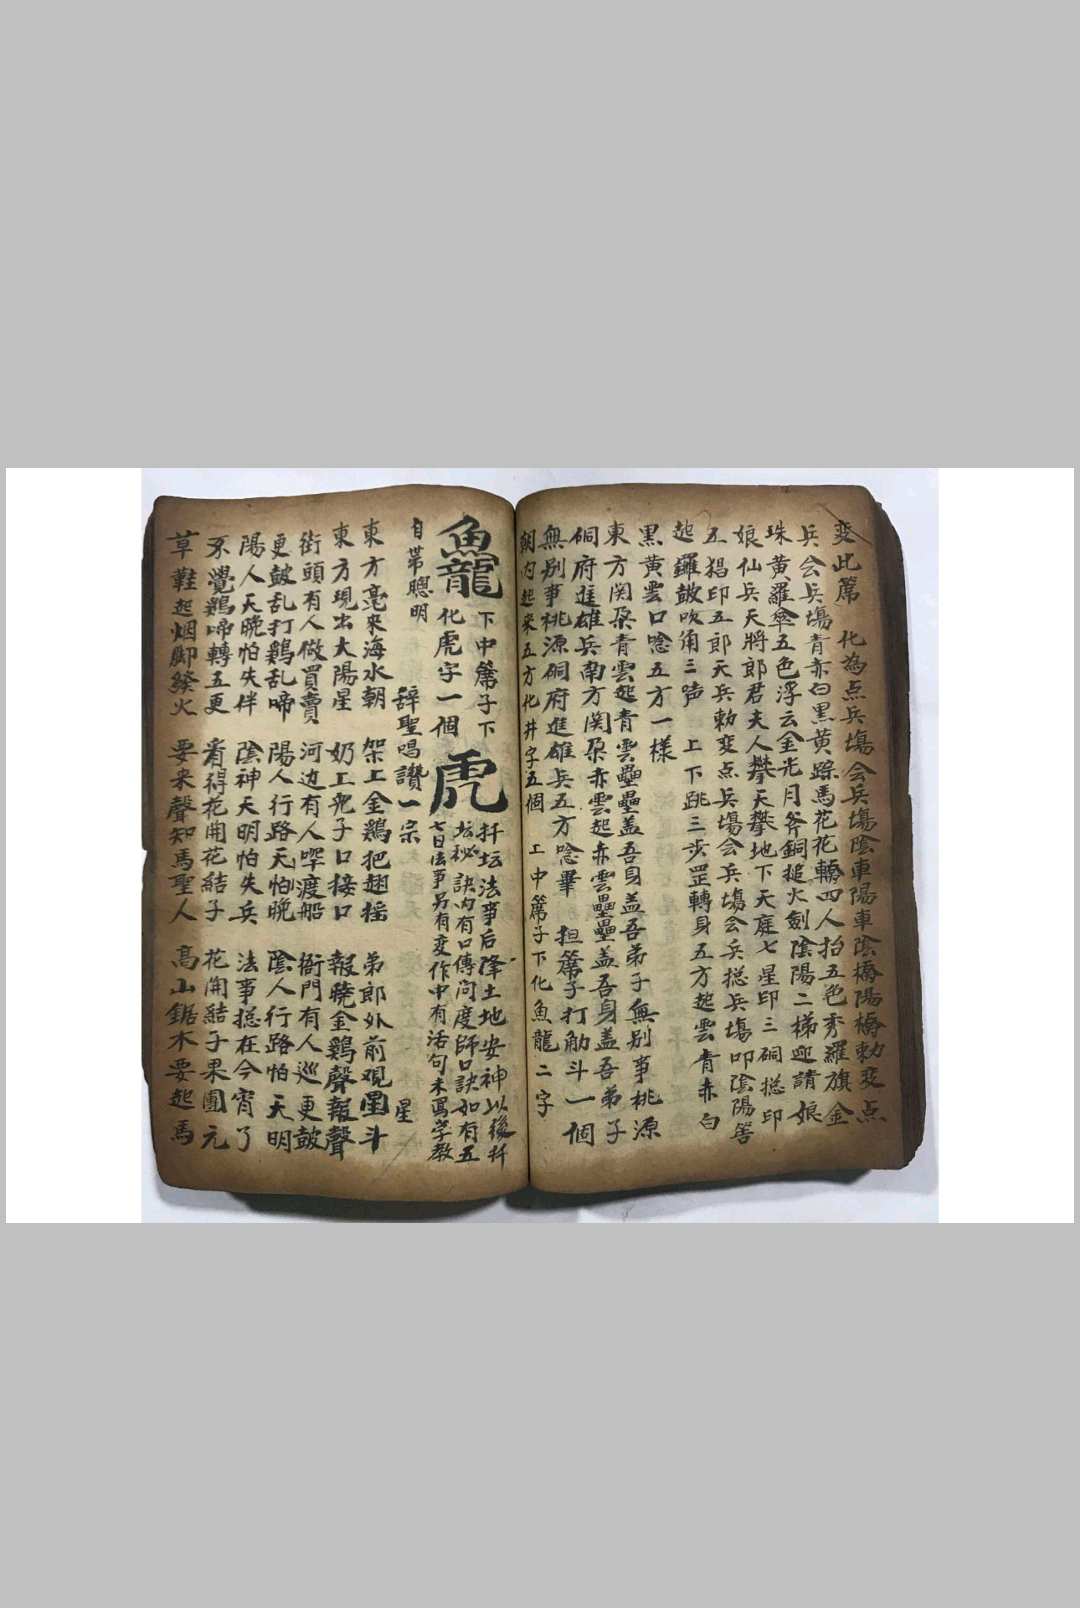 变此篱 化為点兵塲会兵塲陰車陽車陰橋陽橋勅变点
兵会兵塲青赤白黑黄踪馬花花轎四人抬五色秀羅旗金
珠黄羅傘五色浮云金光月斧銅搥火劍陰陽二梯迎請娘
娘仙兵天將郎君夫人攀天攀地下天庭七星印三硐揔印
五猖印五郎天兵勅变点兵塲会兵塲会兵揔兵塲叩陰陽筶
起鑼皷吹角三声 上下跳三步罡轉身五方起雲青赤白
黑黄雲口唸五方一樣
東方関朶青雲起青雲壘壘盖吾身盖吾弟子無别事桃源
硐府進雄兵南方関朶赤雲起赤雲壘壘盖吾身盖吾弟子
無别事桃源硐府進雄兵五方唸畢 担篱子打觔斗一個
朝内起来五方化井字五個 上中篱子下化魚龍二字
魚龍 下中篱子下
化虎字一個 虎
扦坛法事后降土地安神以後扦
坛秘訣内有口傳问度師口訣如有五
七日法事另有变作中有活句未寫学教
自帯聰明 辞聖唱讚一宗 星
東方亮来海水朝 架上金鷄把翅摇 弟郎外前观星斗
東方現出大陽星 奶上兜子口接口 報曉金鷄聲報聲
街頭有人做買賣 河边有人喥渡船 衙門有人巡更皷
更皷乱打鷄乱啼 陽人行路天怕晚 陰人行路怕天明
陽人天晚怕失伴 陰神天明怕失兵 法事揔在今宵了
不覺鷄啼轉五更 看得花開花結子 花開結子果團元
草鞋起烟脚発火 要来聲知馬聖人 高山鋸木要起馬